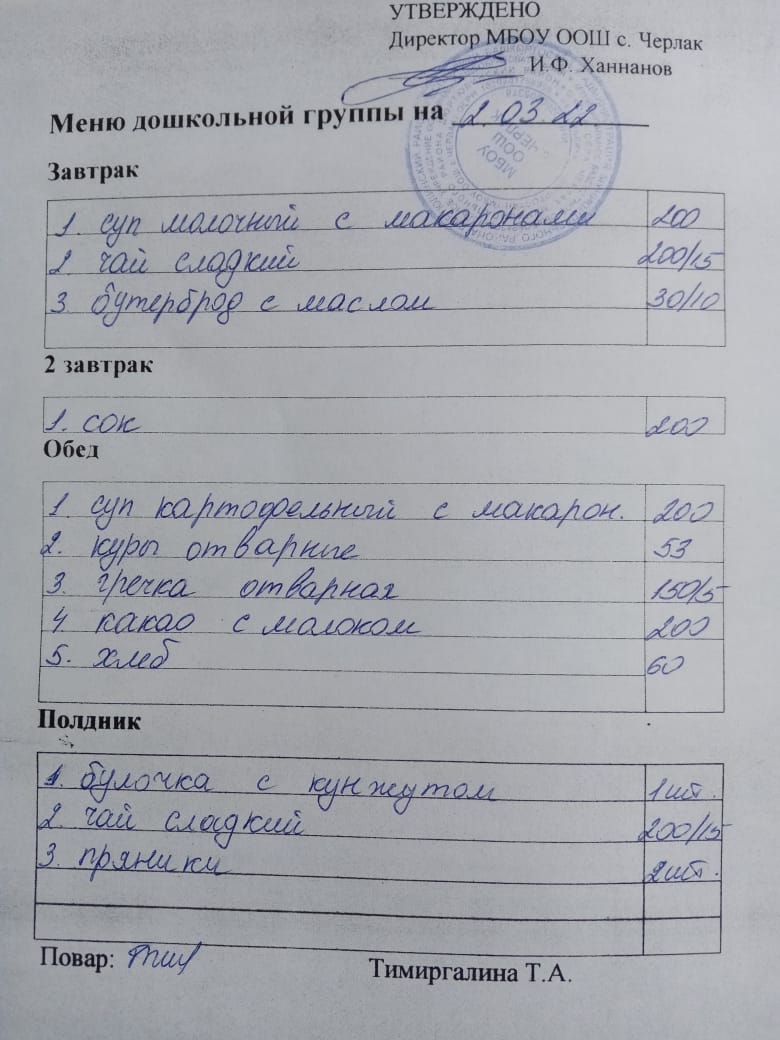 УТВЕРЖДЕНО
Директор МБОУ ООШ с. Черлак
И.Ф. Ханнанов
МБОУ
ООШ
с. ЧЕРЛАК
Меню дошкольной группы на 2.03 22
Завтрак
1. суп молочный с макаронами 200
2. чай сладкий 200/15
3. бутерброд с маслом 30/10
2 завтрак
1. сок 200
Обед
1 суп картофельный с макарон. 200
2. куры отварные 53
3. гречка отварная 150/5
4. какао с молоком 200
5. хлеб 60
Полдник
1. булочка с кунжутом 1шт.
2. чай сладкий 200/15
3. пряники 2шт.
Повар: Тимиргалина Т.А.